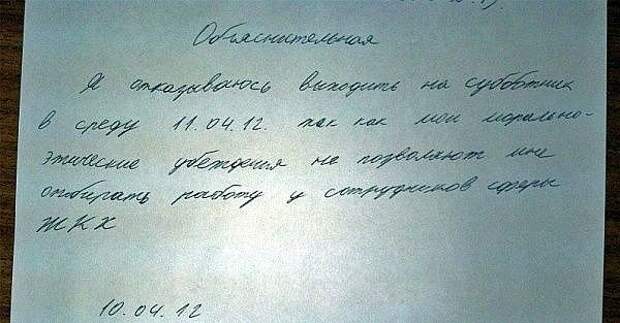 Объяснительная
Я отказываюсь выходить на субботник
в среду 11.04.12. так как мои морально-
этические убеждения не позволяют мне
отбирать работу у сотрудников сферы
ЖКХ
10.04.12